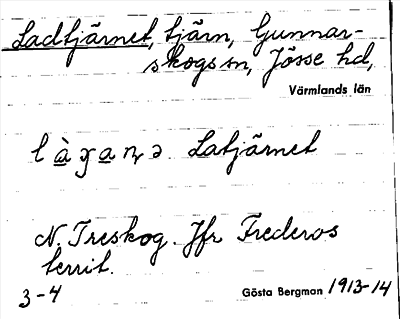 Ladtjärnet, tjärn, Gunnar-
skogs sn, Jösse hd,
Värmlands län
Latjärnet
N. Treskog. Jfr Frederos
territ.
3-4 Gösta Bergman 1913-14